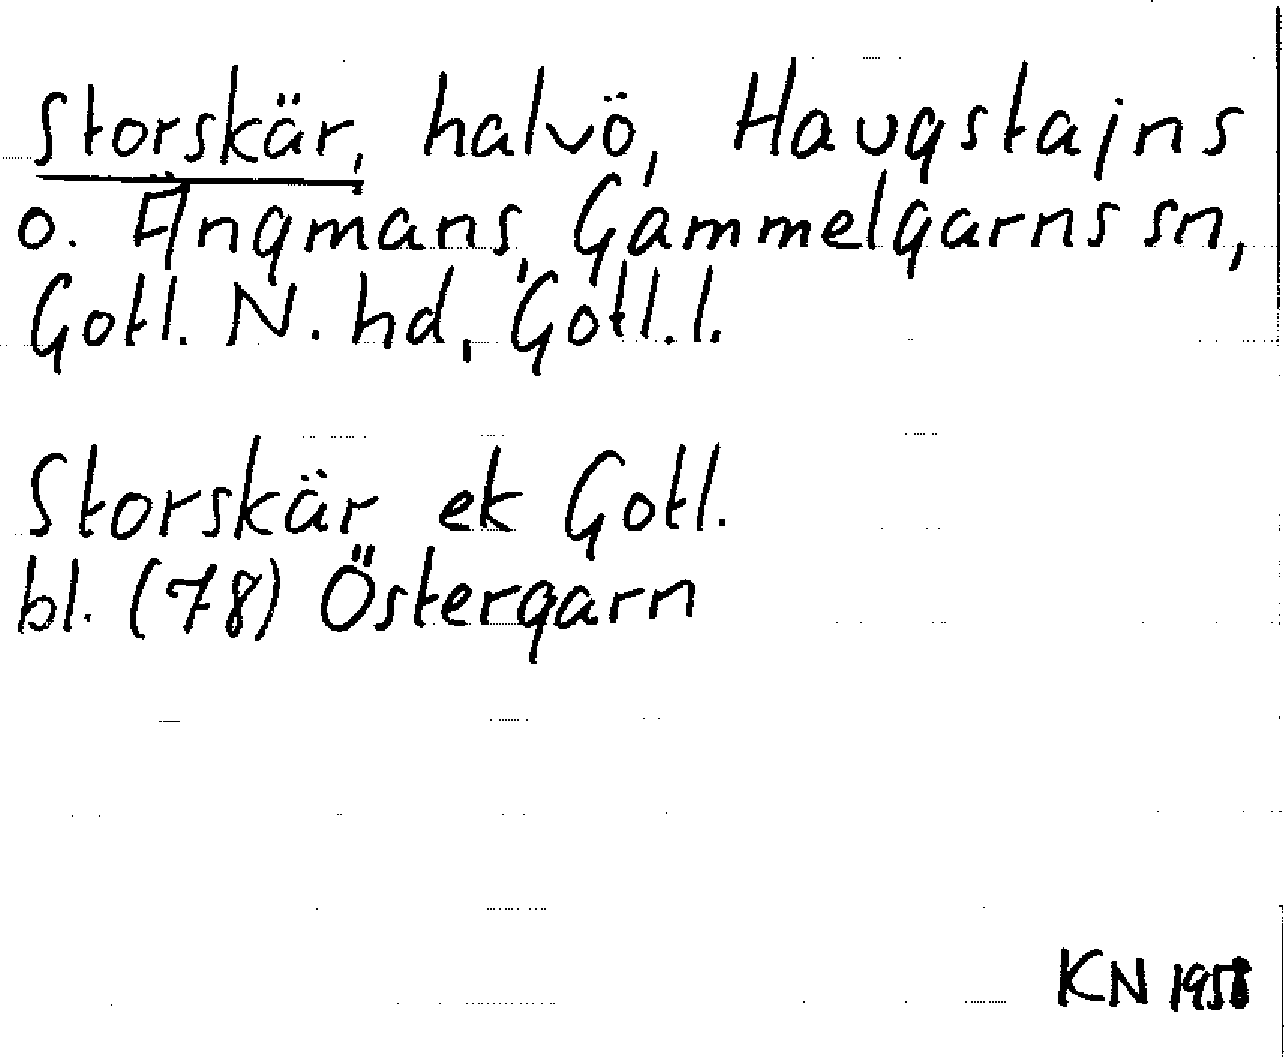 Storskär, halvö, Haugstajns
o. Angmans, Gammelgarns sn,
Gotl. N. hd, Gotl. l.
Storskär ek Gotl.
bl. (78) Östergarn
KN 1958